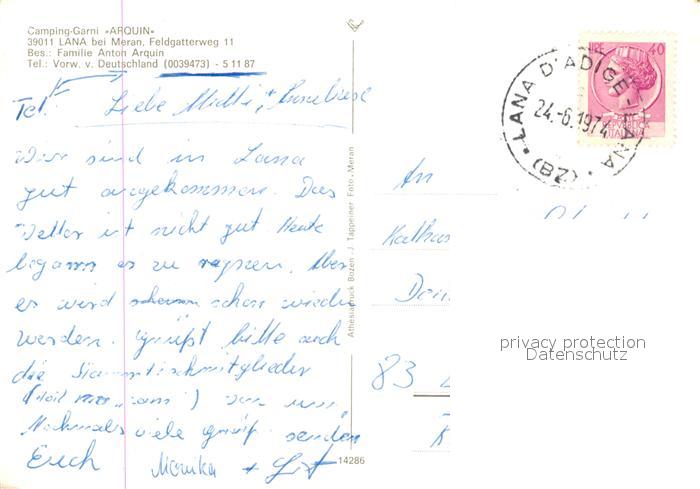 Camping-Garni »ARQUIN«
39011 LANA bei Meran, Feldgatterweg 11
Bes.: Familie Anton Arquin
Tel.: Vorw. v. Deutschland (0039473) - 5 11 87
Tel.
Liebe Mutti +
Wir sind in Lana
gut angekommen. Das
Wetter ist nicht gut. Heute
begann es zu regnen. Aber
es wird schon wieder
werden. Grüßt bitte auch
die Stammtischmitglieder
von uns.
Nochmals viele Grüße senden
Euch Monika +
Athesiadruck Bozen - J. Tappeiner Foto - Meran
14286
LIRE 40
REPUBBLICA
ITALIANA
LANA D'ADIGE - LANA
24.-6.1974
(BZ)
An
83
privacy protection
Datenschutz